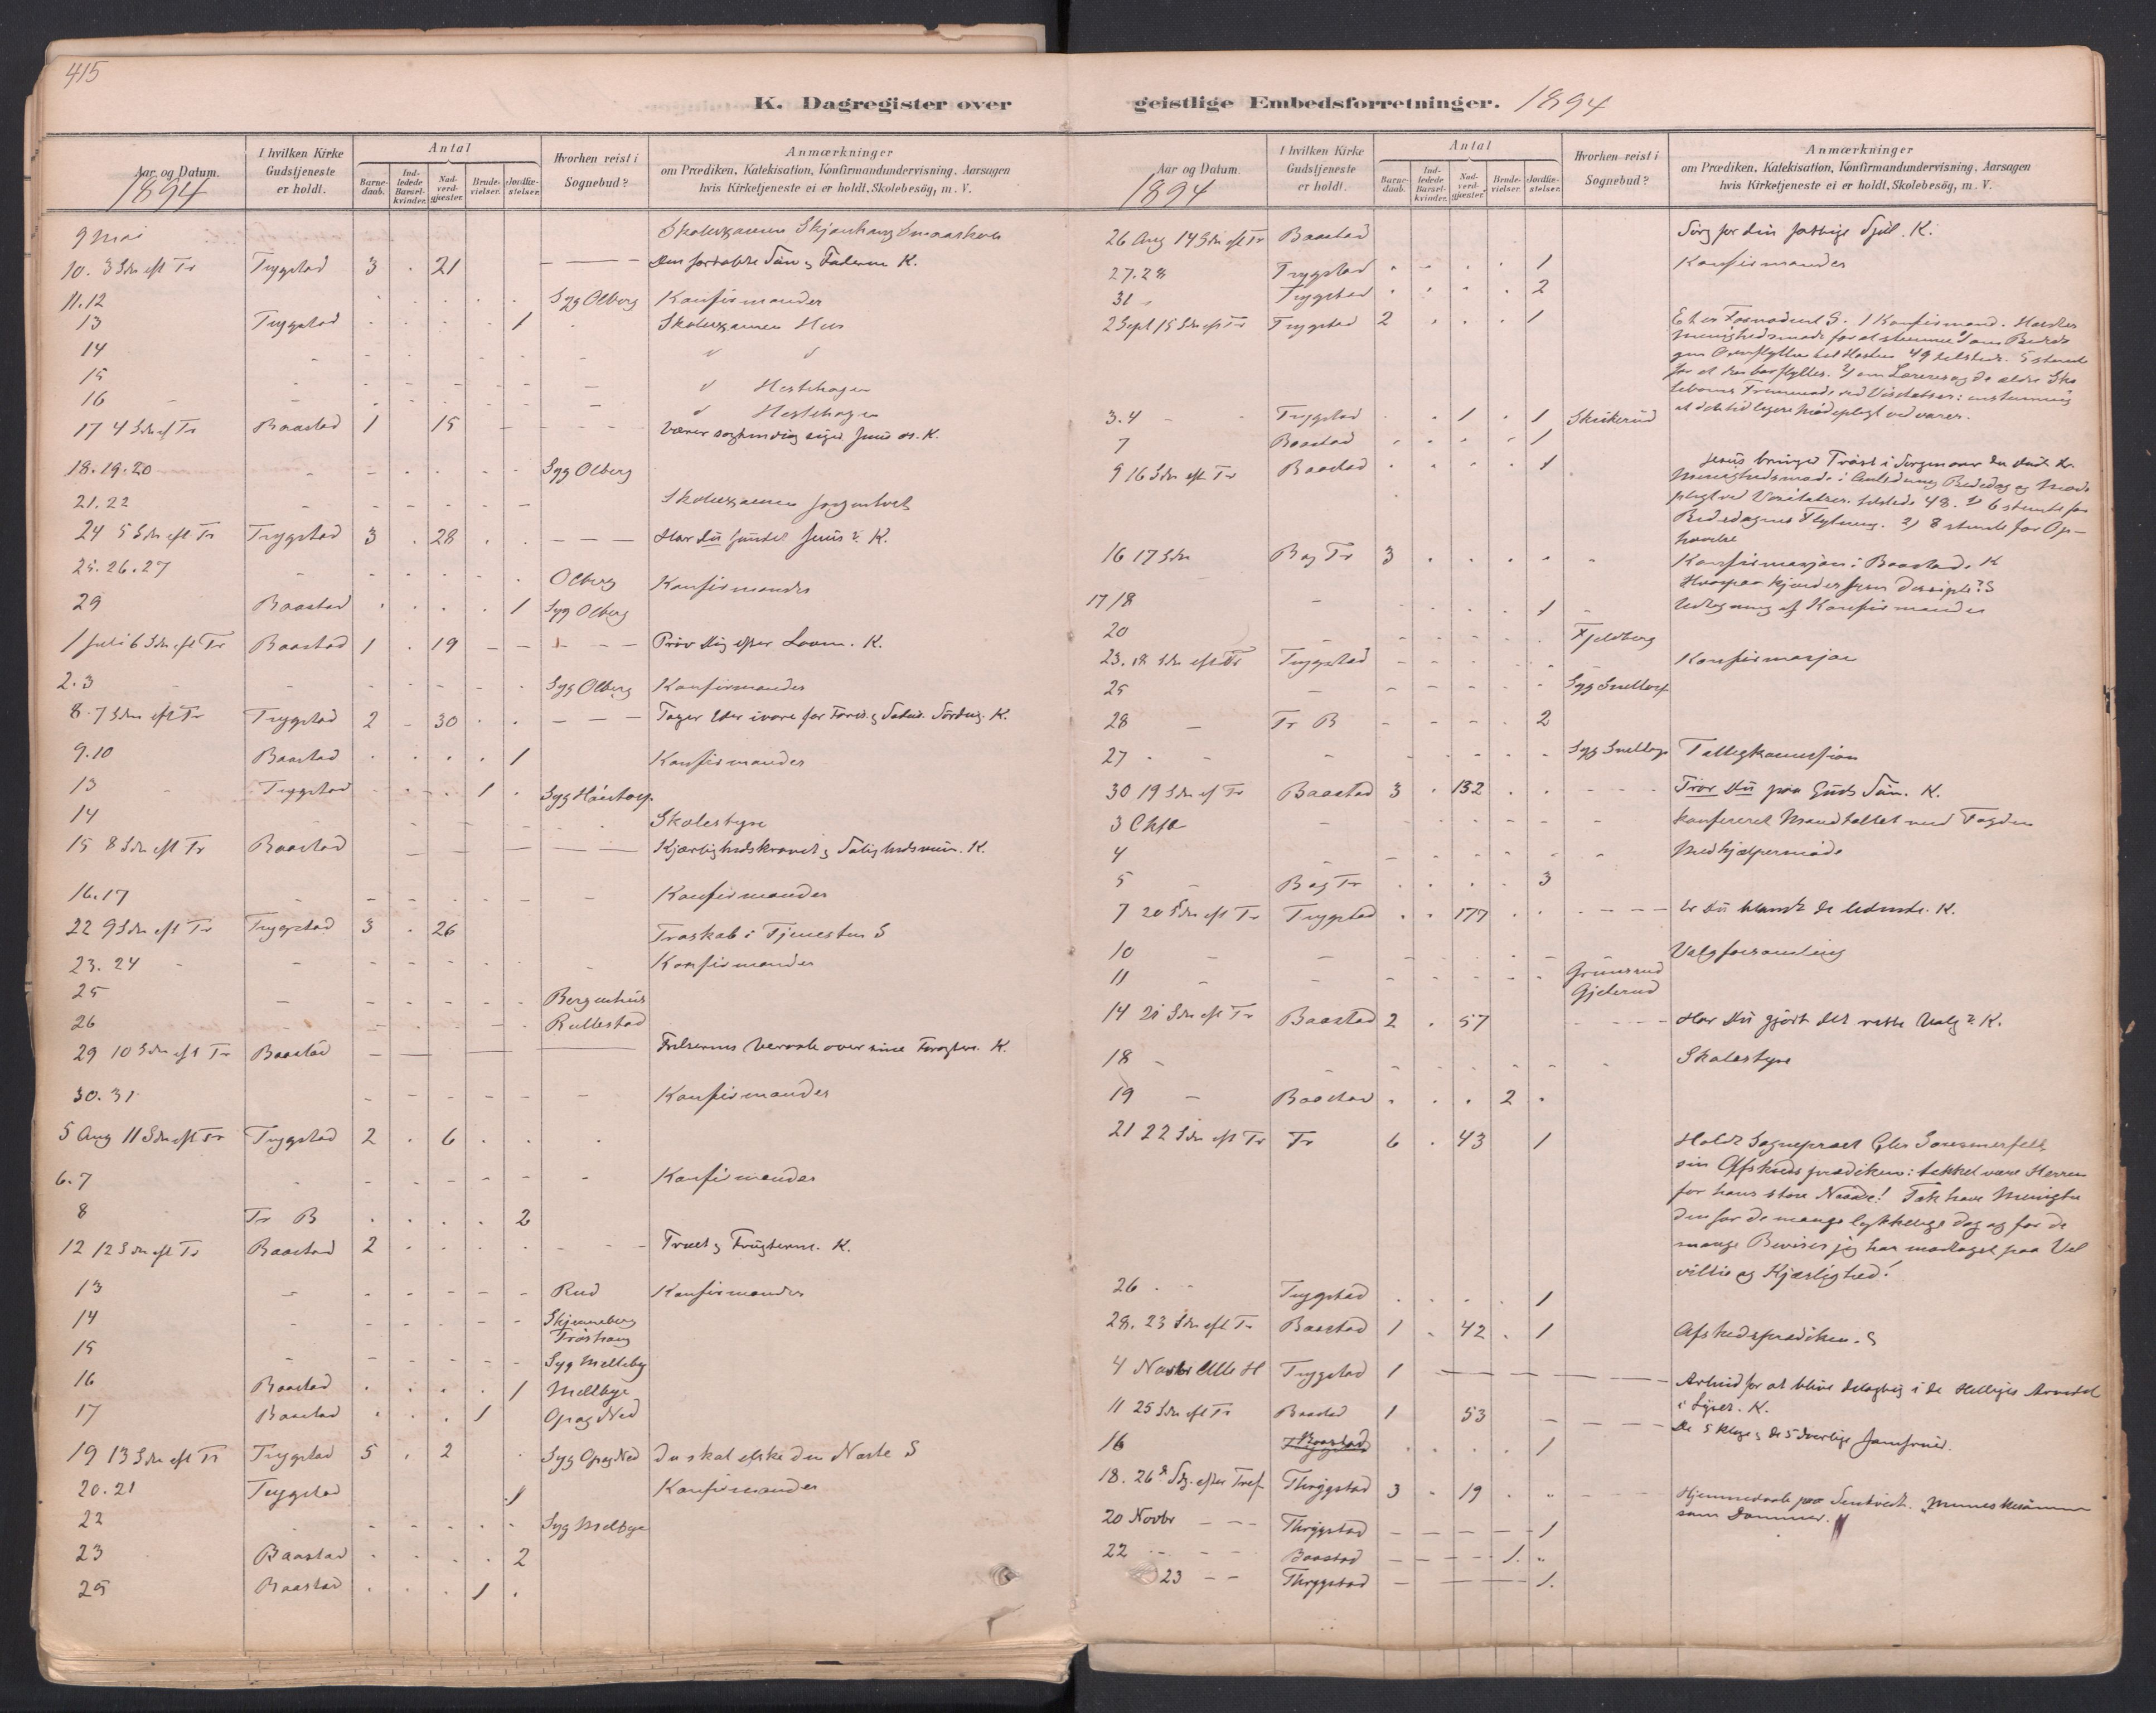 415
K. Dagregister over
Aar og Datum.
1894
I hvilken Kirke Gudstjeneste er holdt.
Antal
Barnedaab.
Indledede Barselkvinder.
Nadverdgjæster.
Brudevielser.
Jordfæstelser.
Hvorhen reist i Sognebud?
Anmærkninger
om Prædiken, Katekisation, Konfirmandundervisning, Aarsagen
hvis Kirketjeneste ei er holdt, Skolebesög, m. V.
9 Mai Skolexamen Skjönhaug Smaaskole
10. 3 Sdn eft Tr Trygstad 3 . 21 Den fortabte Sön & Faderen K.
11.12 Syg Olberg Konfirmander
13 Trygstad 1 Skolexamen Hus
14
15 Hestehagen
16 Hestehagen
17 4 Sdn ef Tr Baastad 1 15 siger Jesus os. K.
18.19.20 Syg Olberg
21.22 Skolexamen
24 5 Sdn eft Tr Trygstad 3 . 28 Har Du fundet Jesus? K.
25.26.27 Olberg Konfirmander
29 Baastad 1 Syg Olberg
1 Juli 6 Sdn eft Tr Baastad 1 . 19 Pröv dig efter Loven. K.
2.3 Syg Olberg Konfirmander
8. 7 Sdn eft Tr Trygstad 2 - 30 Tager Eder ivare for K.
9.10 Baastad 1 Konfirmander
13 Trygstad 1 Syg Höistorp
14 Skolestyre
15 8 Sdn eft Tr Baastad Kjærlighedskravet & K.
16.17 Konfirmander
22 9 Sdn eft Tr Trygstad 3 . 26 Troskab i Tjenesten S
23.24 Konfirmander
25 Bergenhus
26 Rullestad
29 10 Sdn eft Tr Baastad Frelserens Veraab over sine K.
30.31 Konfirmander
5 Aug 11 Sdn eft Tr Trygstad 2 . 6
6.7 Konfirmander
8 Tr B 2
12 12 Sdn eft Tr Baastad 2 Træet & Frugterne. K.
13 Rud Konfirmander
14 Skjenneberg
Fröshaug
15 Syg Melleby
16 Baastad 1 Mellbye
17 Baastad 1 Opag Ned
19 13 Sdn eft Tr Trygstad 5 . 2 Syg Opag Ned Du skal elske din Næste S
20.21 Trygstad 1 Konfirmander
22 Syg Melbye
23 Baastad 2
25 Baastad 1
geistlige Embedsforretninger. 1894
Aar og Datum
1894
I hvilken Kirke Gudstjeneste er holdt.
Antal
Barnedaab.
Indledede Barselkvinder.
Nadverdgjæster.
Brudevielser.
Jordfæstelser.
Hvorhen reist i Sognebud?
Anmærkninger
om Prædiken, Katekisation, Konfirmandundervisning, Aarsagen
hvis Kirketjeneste ei er holdt, Skolebesög, m. V.
26 Aug 14 Sdn eft Tr Baastad Sörg for din fattige Sjæl. K.
27.28 Trygstad 1 Konfirmander
31 Trygstad 2
2 Sept 15 Sdn eft Tr Trygstad 2 1 Et er Fornödent S. 1 Konfirmand. Holdtes
Menighedsmöde for at stemme 1) om Bededa
gens Overflyttelse til Hösten 49 tilstede. 5 stemte
for at den bör flyttes. 2) om Læreres og de ældre Sko
lebörns Fremmöde ved Visitatser: enstemmig
at
3.4 Trygstad 1 1 Skukerud
7 Baastad 1
9 16 Sdn eft Tr Baastad 1 Jesus bringer Tröst i Sorgen over den Död. K.
Menighedsmöde i Anledning Bededag og Möde
pligt ved Visitatser. tilstede 48. 1) 6 stemte for
Bededagens Flytning. 2) 8 stemte for Op-
hævelse
16 17 Sdn B og Tr 3 Konfirmasjon i Baastad. K
Hvorpaa kjendes Disciple? S
17/18 1 Udtagning af Konfirmander
20 Fjeldberg
23. 18 Sdn eft Tr Trygstad Konfirmasjon
25 Syg Sneltorp
28 Tr B 2
27 Syg
30 19 Sdn ef Tr Baastad 3 . 132 Tror Du paa Guds Sön. K.
3 Oktb konfereret Mandtallet med Fogden
4 Medhjælpermöde
5 B og Tr 3
7 20 Sdn eft Tr Trygstad 177 Er Du blandt de K.
10 Valgforsamling
11 Grimsrud
Gjelerud
14 21 Sdn eft Tr Baastad 2 . 57 Har Du gjört det rette Valg? K.
18 Skolestyre
19 Baastad 2
21 22 Sdn eft Tr Tr 6 . 43 1 Holdt Sogneprest
sin Afskedsprædiken: takket være Herren
for hans store Naade! Tak have Menighe
den for de mange lykkelige dag og for de
mange Beviser jeg har modtaget paa Vel
villie og Kjærlighed!
26 Trygstad 1
28. 23 Sdn eft Tr Baastad 1 . 42 . 1 Afskedsprædiken. S
4 Novbr Alle H Trygstad 1 Arbeid for at blive delagtig i de Helliges Arvedel
i Lyset. K.
11 25 Sdn eft Tr Baastad 1 53 De 5 kloge & de 5 daarlige Jomfruer.
16 1
18. 26de Sdg. efter Tref. Thrygstad 3 - 19 Hjemmedaab paa "Menneskesönnen
som Dommer."
20 Novbr Thrygstad 1
22 Baastad 1.
23 Thrygstad 1.